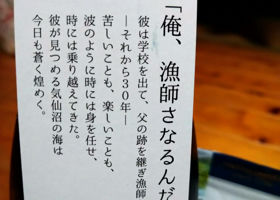 「俺、漁師さなるんだ
彼は学校を出て、父の跡を継ぎ漁師
―それから30年―
苦しいことも、楽しいことも、
波のように時には身を任せ、
時には乗り越えてきた。
彼が見つめる気仙沼の海は
今日も蒼く煌めく。